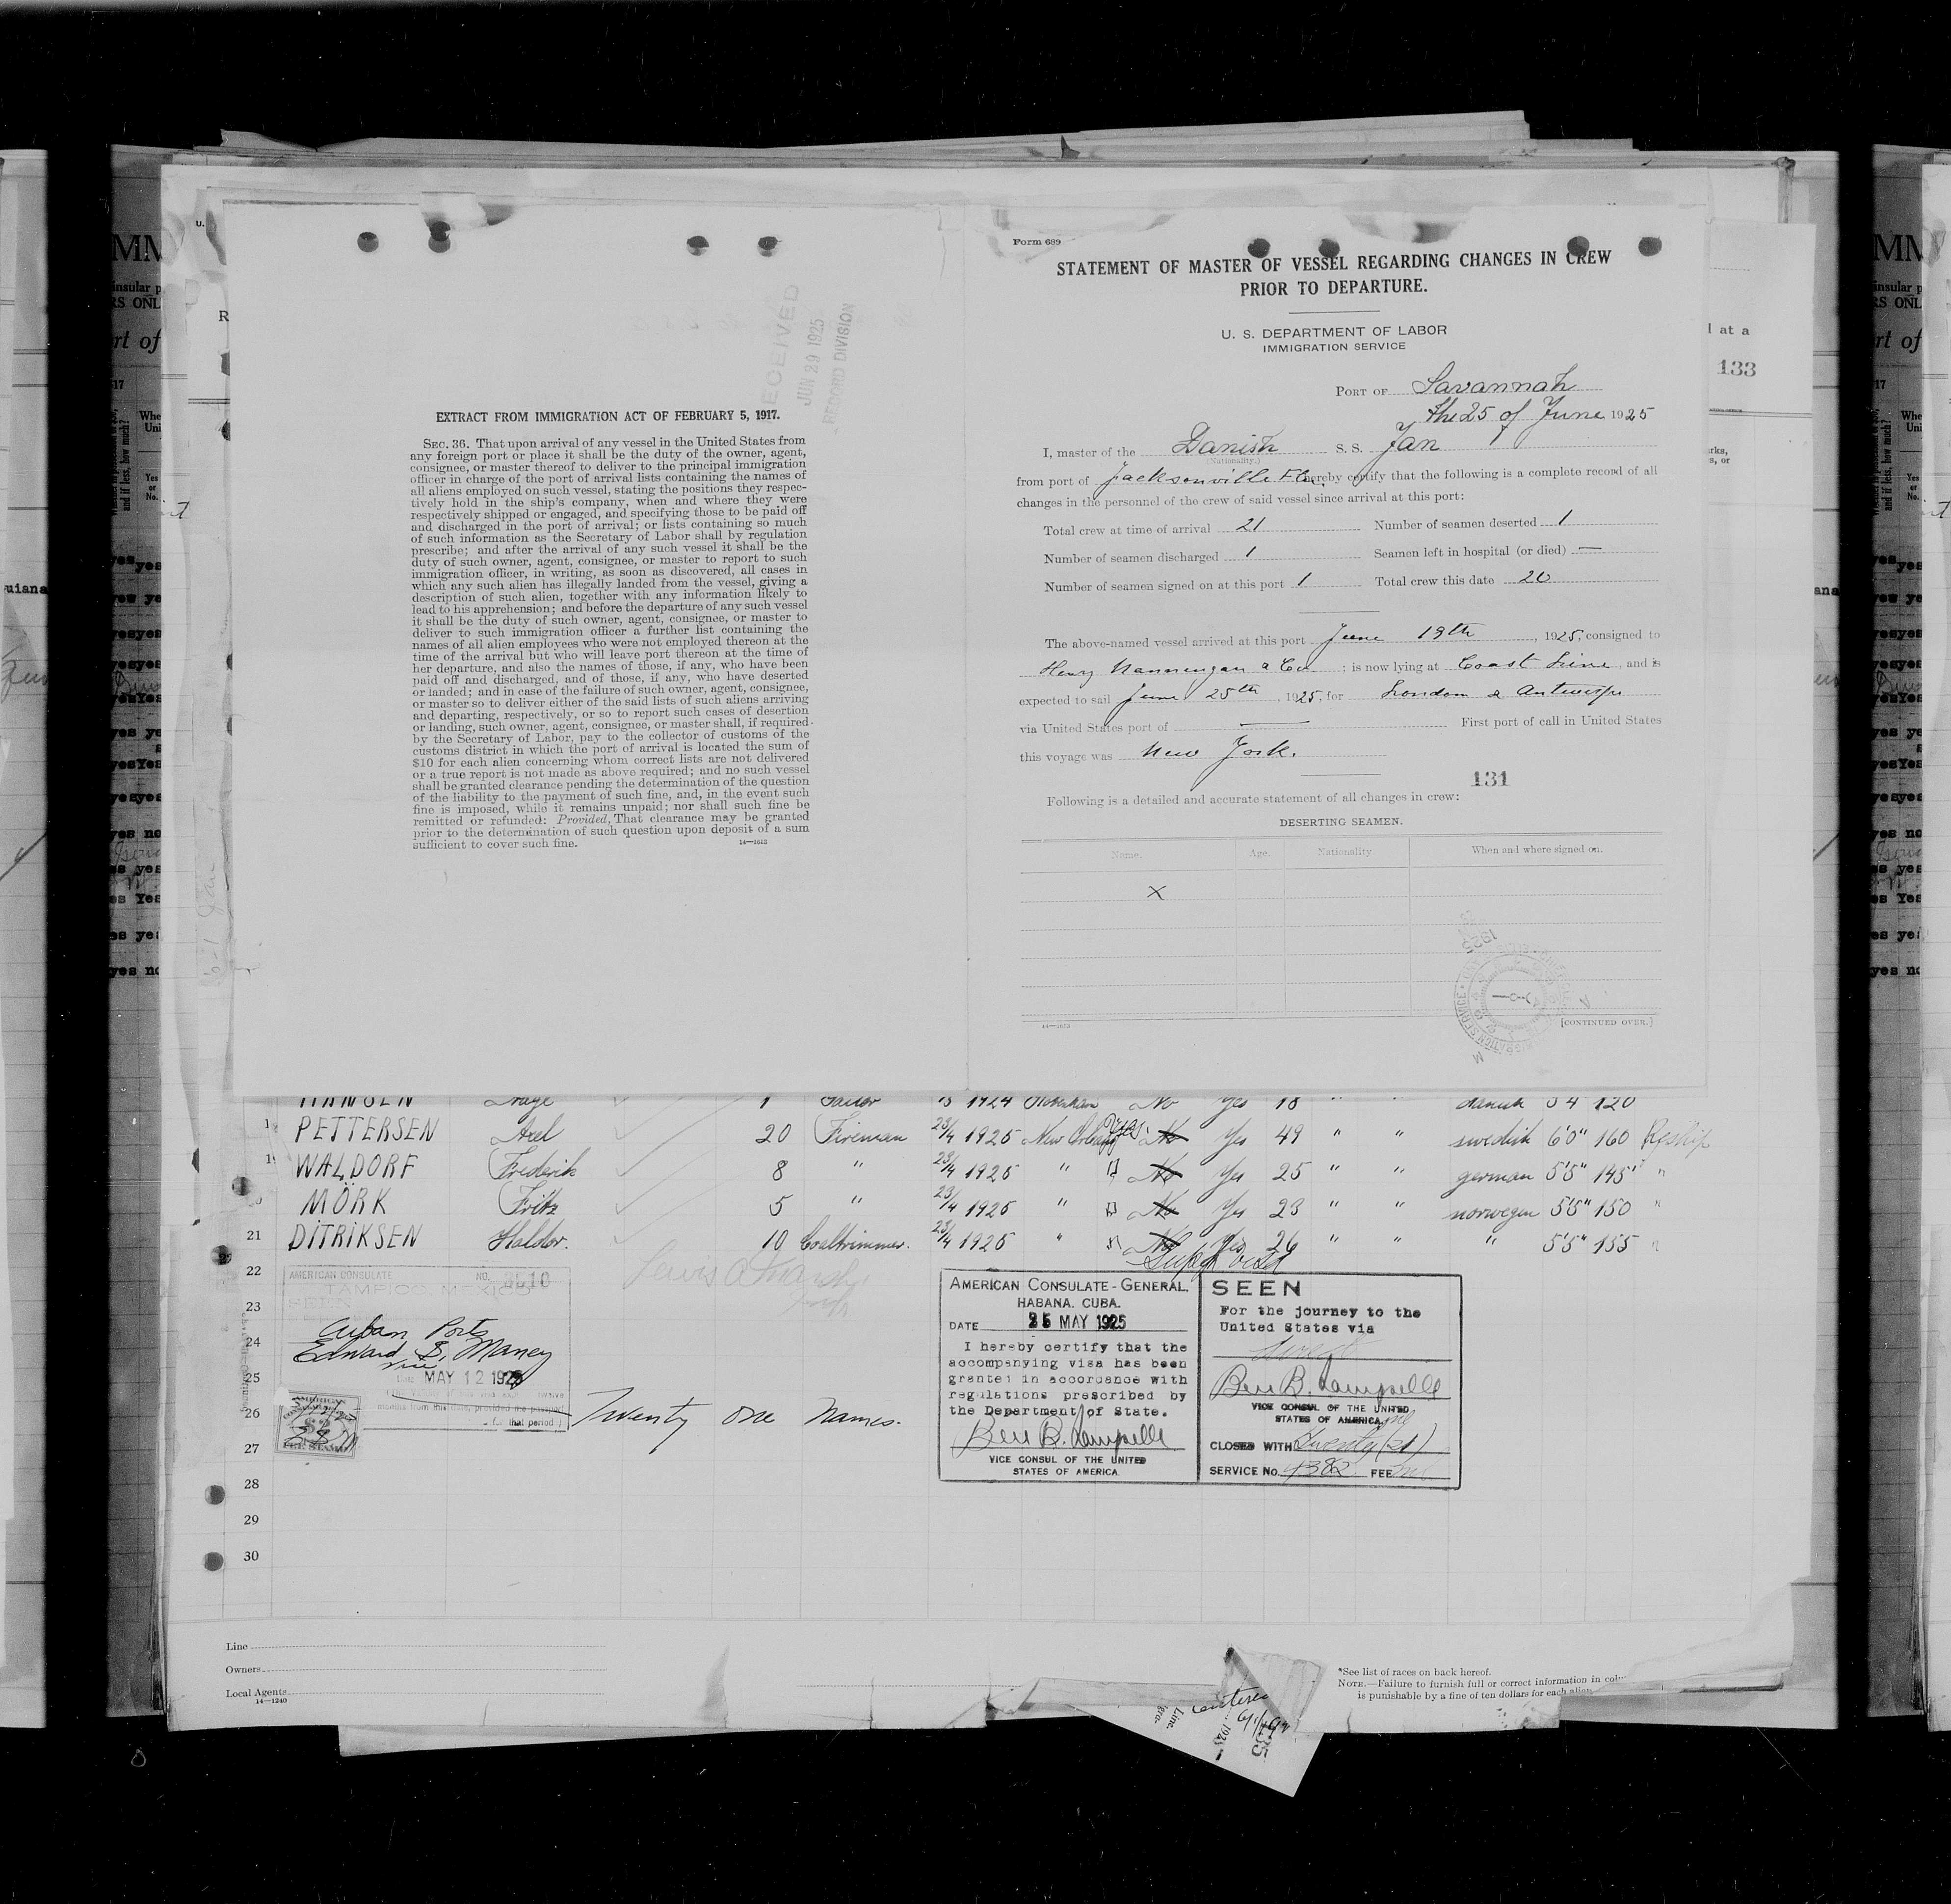 RECEIVED
JUN 29 1925
RECORD DIVISION
EXTRACT FROM IMMIGRATION ACT OF FEBRUARY 5, 1917.
SEC. 36. That upon arrival of any vessel in the United States from
any foreign port or place it shall be the duty of the owner, agent,
consignee, or master thereof to deliver to the principal immigration
officer in charge of the port of arrival lists containing the names of
all aliens employed on such vessel, stating the positions they respec-
tively hold in the ship's company, when and where they were
respectively shipped or engaged, and specifying those to be paid off
and discharged in the port of arrival; or lists containing so much
of such information as the Secretary of Labor shall by regulation
prescribe; and after the arrival of any such vessel it shall be the
duty of such owner, agent, consignee, or master to report to such
immigration officer, in writing, as soon as discovered, all cases in
which any such alien has illegally landed from the vessel, giving a
description of such alien, together with any information likely to
lead to his apprehension; and before the departure of any such vessel
it shall be the duty of such owner, agent, consignee, or master to
deliver to such immigration officer a further list containing the
names of all alien employees who were not employed thereon at the
time of the arrival but who will leave port thereon at the time of
her departure, and also the names of those, if any, who have been
paid off and discharged, and of those, if any, who have deserted
or landed; and in case of the failure of such owner, agent, consignee,
or master so to deliver either of the said lists of such aliens arriving
and departing, respectively, or so to report such cases of desertion
or landing, such owner, agent, consignee, or master shall, if required
by the Secretary of Labor, pay to the collector of customs of the
customs district in which the port of arrival is located the sum of
$10 for each alien concerning whom correct lists are not delivered
or a true report is not made as above required; and no such vessel
shall be granted clearance pending the determination of the question
of the liability to the payment of such fine, and, in the event such
fine is imposed, while it remains unpaid; nor shall such fine be
remitted or refunded: Provided, That clearance may be granted
prior to the determination of such question upon deposit of a sum
sufficient to cover such fine.
14—1613
Form 689
STATEMENT OF MASTER OF VESSEL REGARDING CHANGES IN CREW
PRIOR TO DEPARTURE.
U. S. DEPARTMENT OF LABOR
IMMIGRATION SERVICE
PORT OF Savannah
the 25 of June 1925
I, master of the Danish S. S. Jan
(Nationality.)
from port of Jacksonville Fla. hereby certify that the following is a complete record of all
changes in the personnel of the crew of said vessel since arrival at this port:
Total crew at time of arrival 21 Number of seamen deserted 1
Number of seamen discharged 1 Seamen left in hospital (or died) —
Number of seamen signed on at this port 1 Total crew this date 20
The above-named vessel arrived at this port June 19th, 1925, consigned to
Henry & Co; is now lying at Coast Line, and is
expected to sail June 25th, 1925, for London & Antwerp
via United States port of — First port of call in United States
this voyage was New York.
131
Following is a detailed and accurate statement of all changes in crew:
DESERTING SEAMEN.
Name. Age. Nationality. When and where signed on.
X
14—1613
[CONTINUED OVER.]
133
HANSEN Aage 1 Sailor 1924 No Yes 18 " " danish 5'4 120
PETTERSEN Axel 20 Fireman 23/4 1925 New Orleans No Yes 49 " " swedish 6'0" 160 Reship
WALDORF Frederik 8 " 23/4 1925 " No Yes 25 " " german 5'5" 145 "
MÖRK Fritz 5 " 23/4 1925 " No Yes 23 " " norwegen 5'5" 150 "
21 DITRIKSEN Haldor. 10 Coaltrimmer. 23/4 1925 " No Yes 26 " " " 5'5" 155 "
22
23
24
25
26
27
28
29
30
AMERICAN CONSULATE NO. 3510
TAMPICO MEXICO
SEEN
Cuban Ports
Edward S. Maney
Vice
MAY 12 1925
months from this date, provided the passport
for that period
Twenty one names.
AMERICAN CONSULATE-GENERAL.
HABANA. CUBA.
DATE 25 MAY 1925
I hereby certify that the
accompanying visa has been
granted in accordance with
regulations prescribed by
the Department of State.
VICE CONSUL OF THE UNITED
STATES OF AMERICA
SEEN
For the journey to the
United States via
Direct
VICE CONSUL OF THE UNITED
STATES OF AMERICA.
CLOSED WITH Twenty one (21)
SERVICE No. 4382 FEE
Line
Owners
Local Agents
14—1240
*See list of races on back hereof.
NOTE.—Failure to furnish full or correct information in
is punishable by a fine of ten dollars for each alien